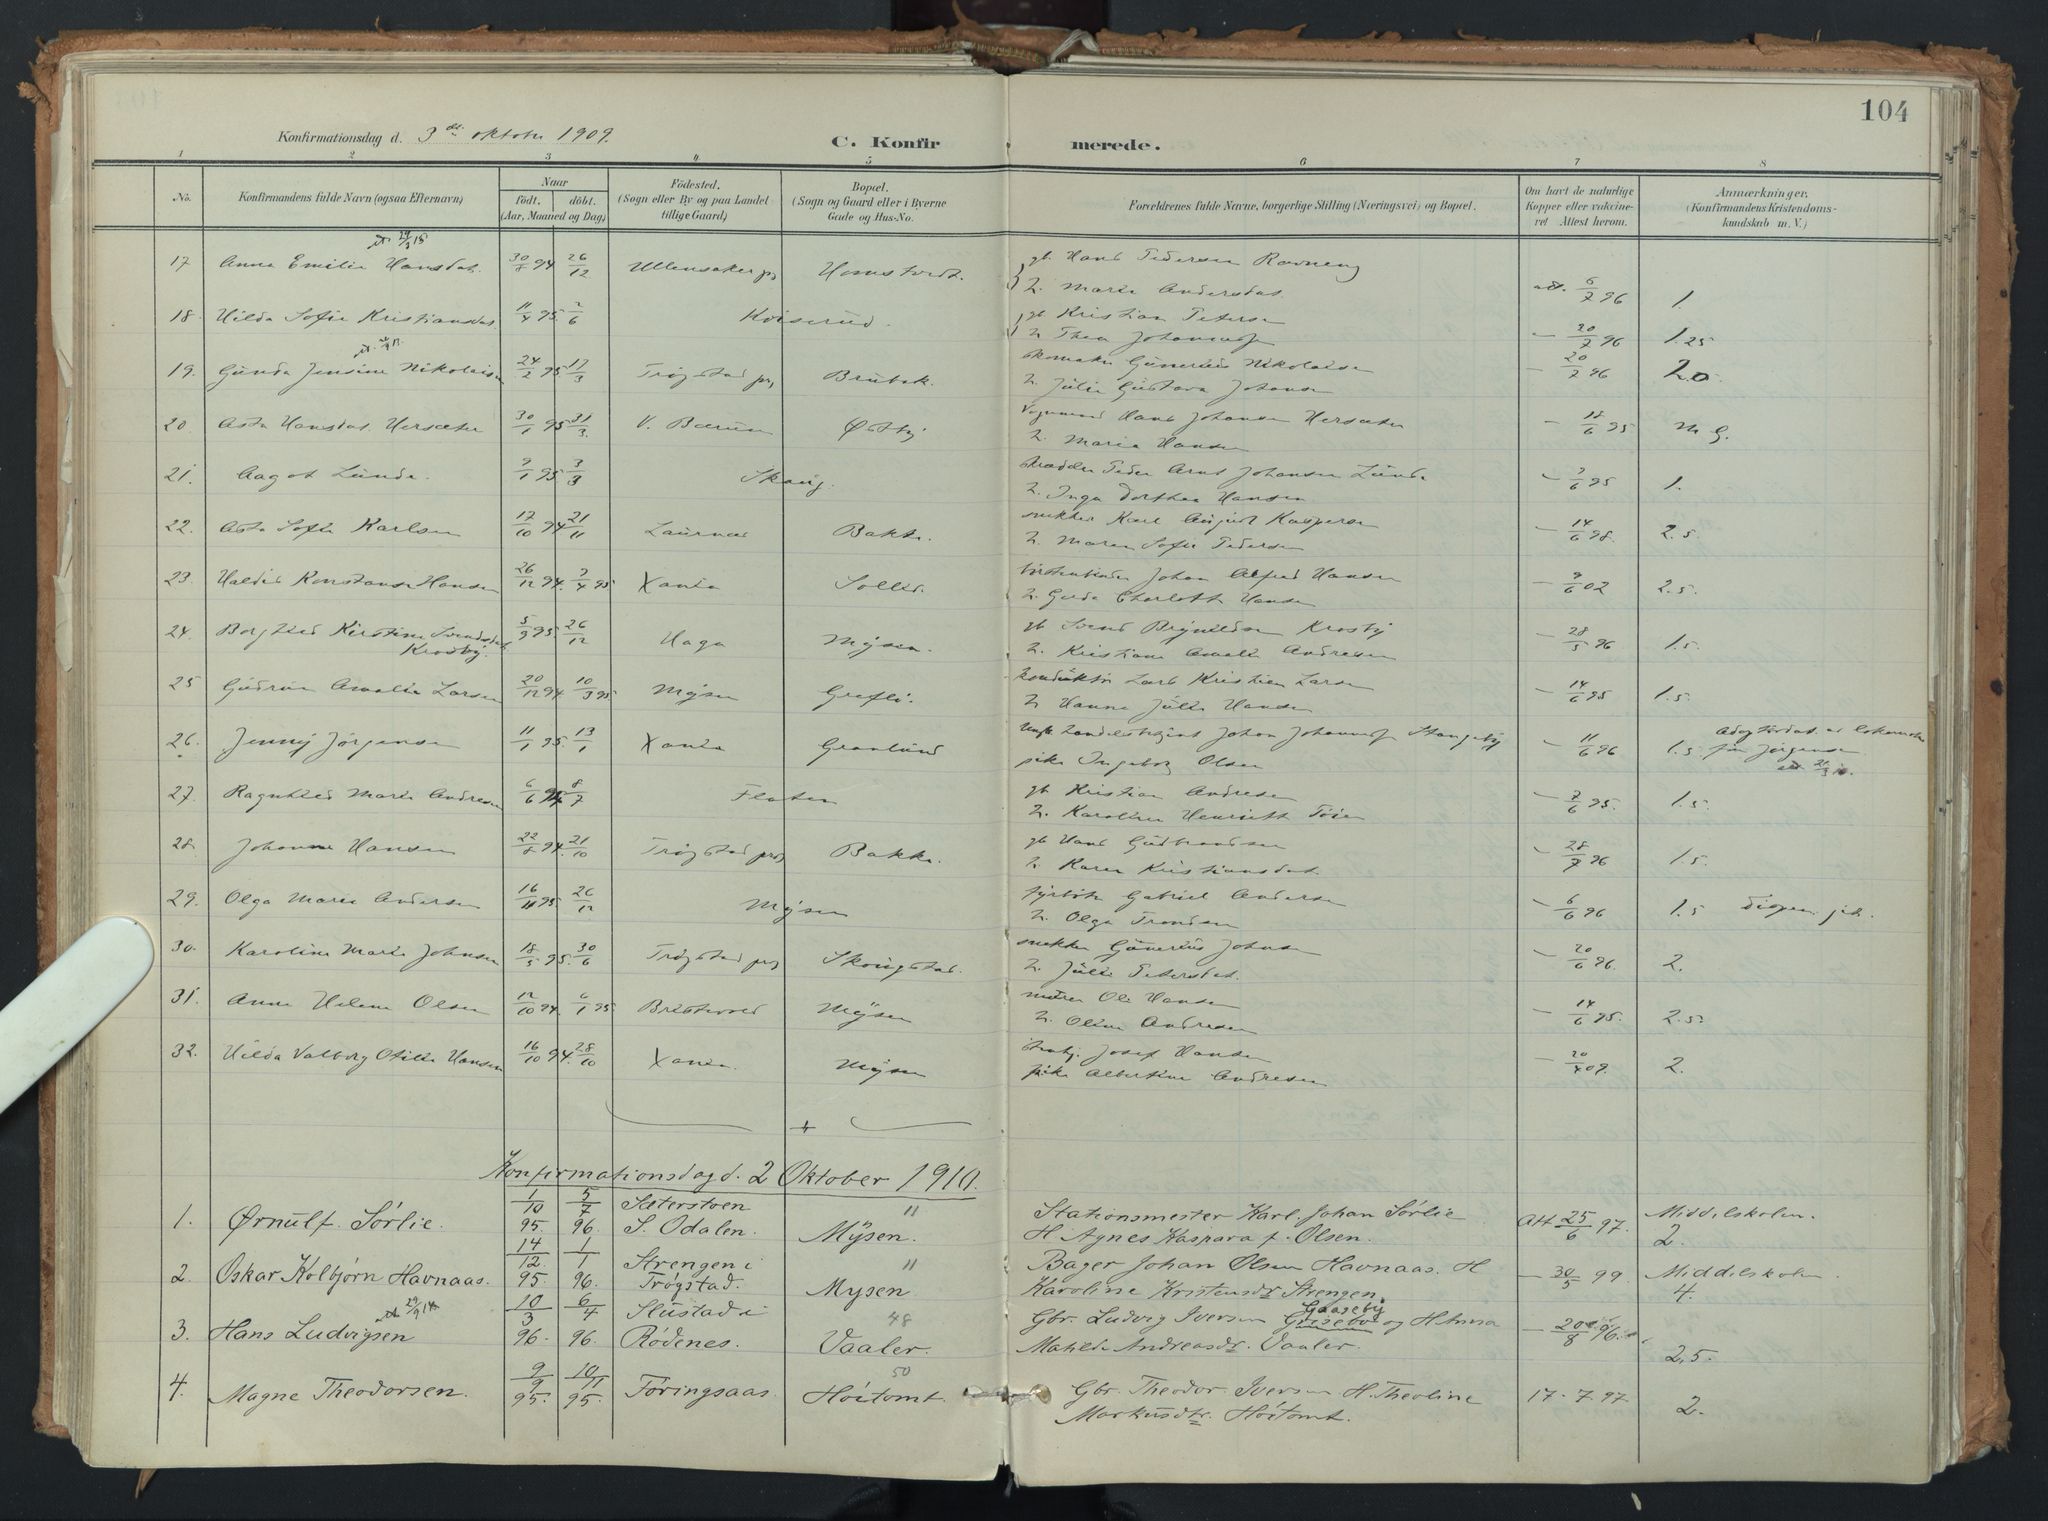 104
Konfirmationsdag d. 3die oktober 1909.
C. Konfirmerede.
1 2 3 4 5 6 7 8
No.
Konfirmandens fulde Navn (ogsaa Efternavn)
Naar
födt. döbt.
(Aar, Maaned og Dag)
Födested.
(Sogn eller By og paa Landet
tillige Gaard)
Bopæl.
(Sogn og Gaard eller i Byerne
Gade og Hus-No.
Forældrenes fulde Navne, borgerlige Stilling (Næringsvei) og Bopæl.
Om havt de naturlige
Kopper eller vakcine-
ret Attest herom.
Anmærkninger.
(Konfirmandens Kristendoms-
kundskab m. V.)
17. Anna Emilie Hansdat. 30/8 94 26/12 Ullensaker
gb. Hans Pedersen
h. Marie Andersdat. att. 6/7 96 1
18. Hilda Sofie Kristiansdat. 11/4 95. 2/6 Kviserud.
gb Kristian Petersen
h Thea - 20/7 96 1.25
19. Gunda Jensine Nikolaisen 24/2 95 17/3 Trøgstad prg Brubak.
skomaker Gunerius Nikolaisen - 20/7 96
h. Julie Gustava Johansen
20. Asta Hansdat. Hersæter 30/1 95 31/3. V. Bærum Østby
Hans Johansen Hersæter - 18/6 95 M G.
h. Maria Hansen
21. Aagot Lunde. 9/1 95. 3/3 Skaug.
skrædder Peder Arnt Johansen Lunde - 7/6 95 1.
h. Inga Dorthea Hansen
22. Asta Sofie Karlsen 17/10 94. 21/11 Bakke.
snekker Karl August Kaspersen - 14/6 98. 2.5.
h. Maren Sofie Pedersen
23. Konstanse Hansen 26/12 94. 7/4 95 Xania Sollid.
Johan Alfred Hansen - 9/6 02 2.5.
h. Gerda Charlotte Hansen
24. Borghild Kirstine Svendsdat. 5/9 95. 26/12 Haga Mysen.
Krosby.
gb Svend Brynildsen Krosby - 28/5 96 1.5.
h. Kristiane Amalie Andresen
25 Gudrun Amalie Larsen 20/12 94. 10/3 95 Mysen Grefli.
konduktør Lars Kristian Larsen - 14/6 95. 1.5.
h Hanna Julie Hansen
26. Jenny Jørgensen 11/1 95. 13/1 Xania Granlund
Johan Stangeby - 11/6 96 1.5
pike Ingeborg Olsen
27. Ragnhild Marie Andresen 6/6 8/7 Flaten
gb Kristian Andresen - 7/6 95. 1.5.
h. Karoline Henriette
28. Johanne Hansen 22/8 94. 21/10 Trøgstad prg Bakke.
gb Hans Gudbrandsen - 28/7 96 1.5.
h. Karen Kristiansdat.
29. Olga Marie Andersen 16/11 95. 26/12 Mysen
fyrbøter Gabriel Andersen - 6/6 96 1.5
h. Olga Trondsen
30. Karoline Marie Johnsen 18/5 95. 30/6 Trøgstad prg Skougstad.
snekker Gunerius Johnsen - 20/6 96. 2.
h. Julie Petersdat.
31. Anna Helene Olsen 12/10 94. 6/1 95. Mysen
murer Ole Hansen - 14/6 95. 2.5.
h. Oline Andresen
32. Hilda Valborg Otilie Hansen 16/10 94. 28/10 Xania. Mysen
Josef Hansen - 20/4 09. 2.
pike Albertine Andresen
Konfirmationsdag d. 2 Oktober 1910.
1. Ørnulf Sørlie. 1/10 95. 5/7 96. Sæterstøen S. Odalen. " Mysen.
Stationsmester Karl Johan Sørlie
H Agnes Kaspara f. Olsen. Att 25/6 97. Middelskolen. 2.
2. Oskar Kolbjørn Havnaas. 14/12. 95. 1/1 96. Strengen i Trøgstad. " Mysen.
Bager Johan Olsen Havnaas. H
Karoline Kristensdr Strengen. - 30/5 99. Middelskolen. 4.
3. Hans Ludvigsen 10/3 96. 6/4 96. Slustad i Rødenes. 48 Vaaler.
Gaaseby
Gbr. Ludvig Iversen og H. Anna
Matilde Andreasdr. Vaaler. - 20/8 96. 2,5.
4. Magne Theodorsen. 9/9 95. 10/11 95. Tøringsaas. 50 Høitomt.
Gbr. Theodor Iversen H. Theoline
Markusdtr. Høitomt. 17-7.97. 2.